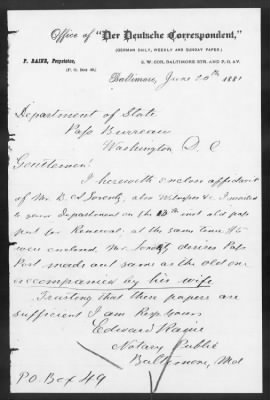 Office of "Der Deutsche Correspondent,"
(GERMAN DAILY, WEEKLY AND SUNDAY PAPER.)
F. RAINE, Proprietor,
(P. O. Box 49.)
S. W. COR. BALTIMORE STR. AND P. O. AV.
Baltimore, June 20th 1881
Department of State
Pass Bureau
Washington D. C
Gentlemen!
I herewith enclose affidavit
of Mr. D. S. also &c. I mailed
to your Department on the 13th inst old pass
port for Renewal, at the same time
were enclosed. Mr. desires Pass
Port made out same as the old one
accompanied by his wife
Trusting that these papers are
sufficient I am Resp. Yours
Edward Raine
Notary Public
Baltimore, Md
P.O. Box 49